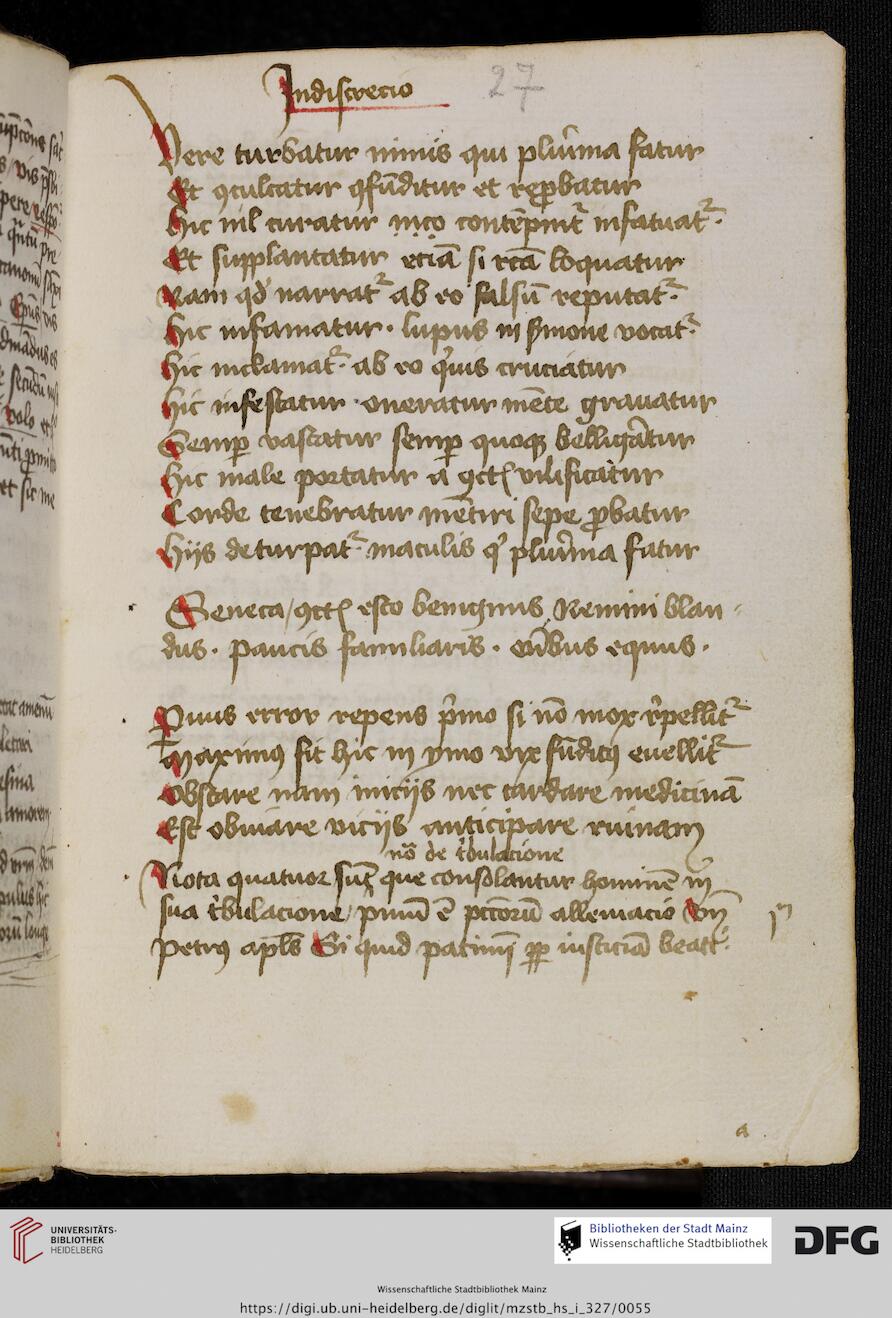 Indiscrecio 27
Vere turbatur nimis qui plurīma fatur
Et ꝯculcatur ꝯfūditur et reꝓbatur
Hic nil curatur contēpnit᷑ infatuat᷑
Et supplantatur eciā si rcā loquatur
Nam qd' narrat᷑ ab eo falsū reputat᷑
Hic infamatur · lupus in s̄mone vocat᷑
Hic inclamat᷑ · ab eo qͥuis cruciatur
Hic infestatur · oneratur mēte grauatur
Semꝑ vastatur semꝑ quoqꝫ belligātur
Hic male portatur a ꝯctꝭ vilificatur
Corde tenebratur mētiri sepe ꝓbatur
Hijs deturpat᷑ · maculis qͥ plurīma fatur
Seneca / ꝯctꝭ esto benignus Nemini blan⸗
dus · paucis familiaris · om̄bus equus ·
Ꝑuus error repens pͥmo si nō mox r̄pellit᷑
Maximꝰ fit hic in ymo vix fūditꝰ euellit᷑
Obstare nam inicijs nec tardare medicinā
Est obuiare vicijs anticipare ruinam
nō de tͥbulacione
Nota quatuor sūt que consolantur hominē in
sua tͥbulacione / pͥmū ē pctōrū alleuiacio Vn̄ jm
Petrꝰ apl̄s Si quid patimī ꝓꝑ iusticiā beatī
a
UNIVERSITÄTS-
BIBLIOTHEK
HEIDELBERG
Bibliotheken der Stadt Mainz
Wissenschaftliche Stadtbibliothek
DFG
Wissenschaftliche Stadtbibliothek Mainz
https://digi.ub.uni-heidelberg.de/diglit/mzstb_hs_i_327/0055